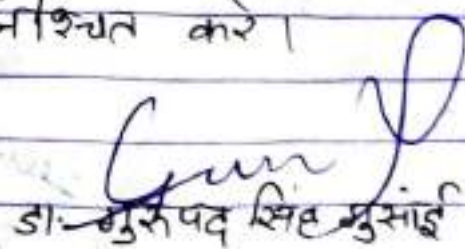 निश्चित करे।
डा. गुरुपद सिंह गुसांई